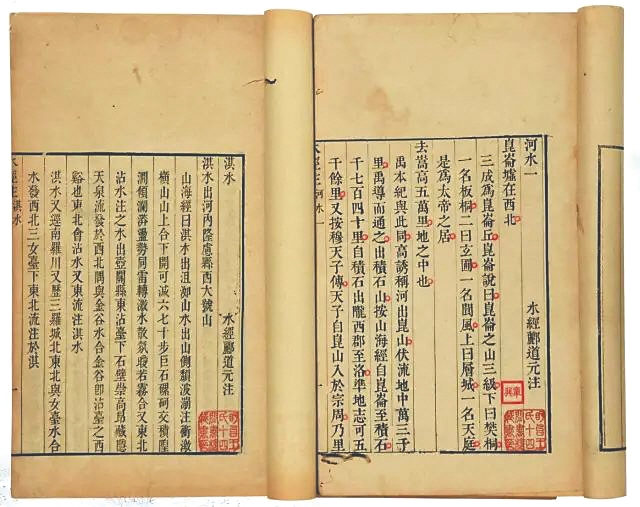 河水一
水經酈道元注
崑崙墟在西北
三成爲崑崙丘崑崙說曰崑崙之山三級下曰樊桐
一名板桐二曰玄圃一名閬風上曰層城一名天庭
是爲太帝之居
去嵩高五萬里地之中也
禹本紀與此同高誘稱河出崑山伏流地中萬三千
里禹導而通之出積石山按山海經自崑崙至積石
千七百四十里自積石出隴西郡至洛準地志可五
千餘里又按穆天子傳天子自崑山入於宗周乃里
水經注河水一
淇水
水經酈道元注
淇水出河內隆慮縣西大號山
山海經曰淇水出沮洳山水出山側頹波漰注衝激
橫山山上合下開可減六七十步巨石磥砢交積隍
澗傾瀾漭盪勢同雷轉激水散氛曖若霧合又東北
沾水注之水出壺關縣東沾臺下石壁崇高昂藏隱
天泉流發於西北隅與金谷水合金谷即沾臺之西
谿也東北會沾水又東流注淇水
淇水又逕南羅川又歷三羅城北東北與女臺水合
水發西北三女臺下東北流注於淇
水經注淇水